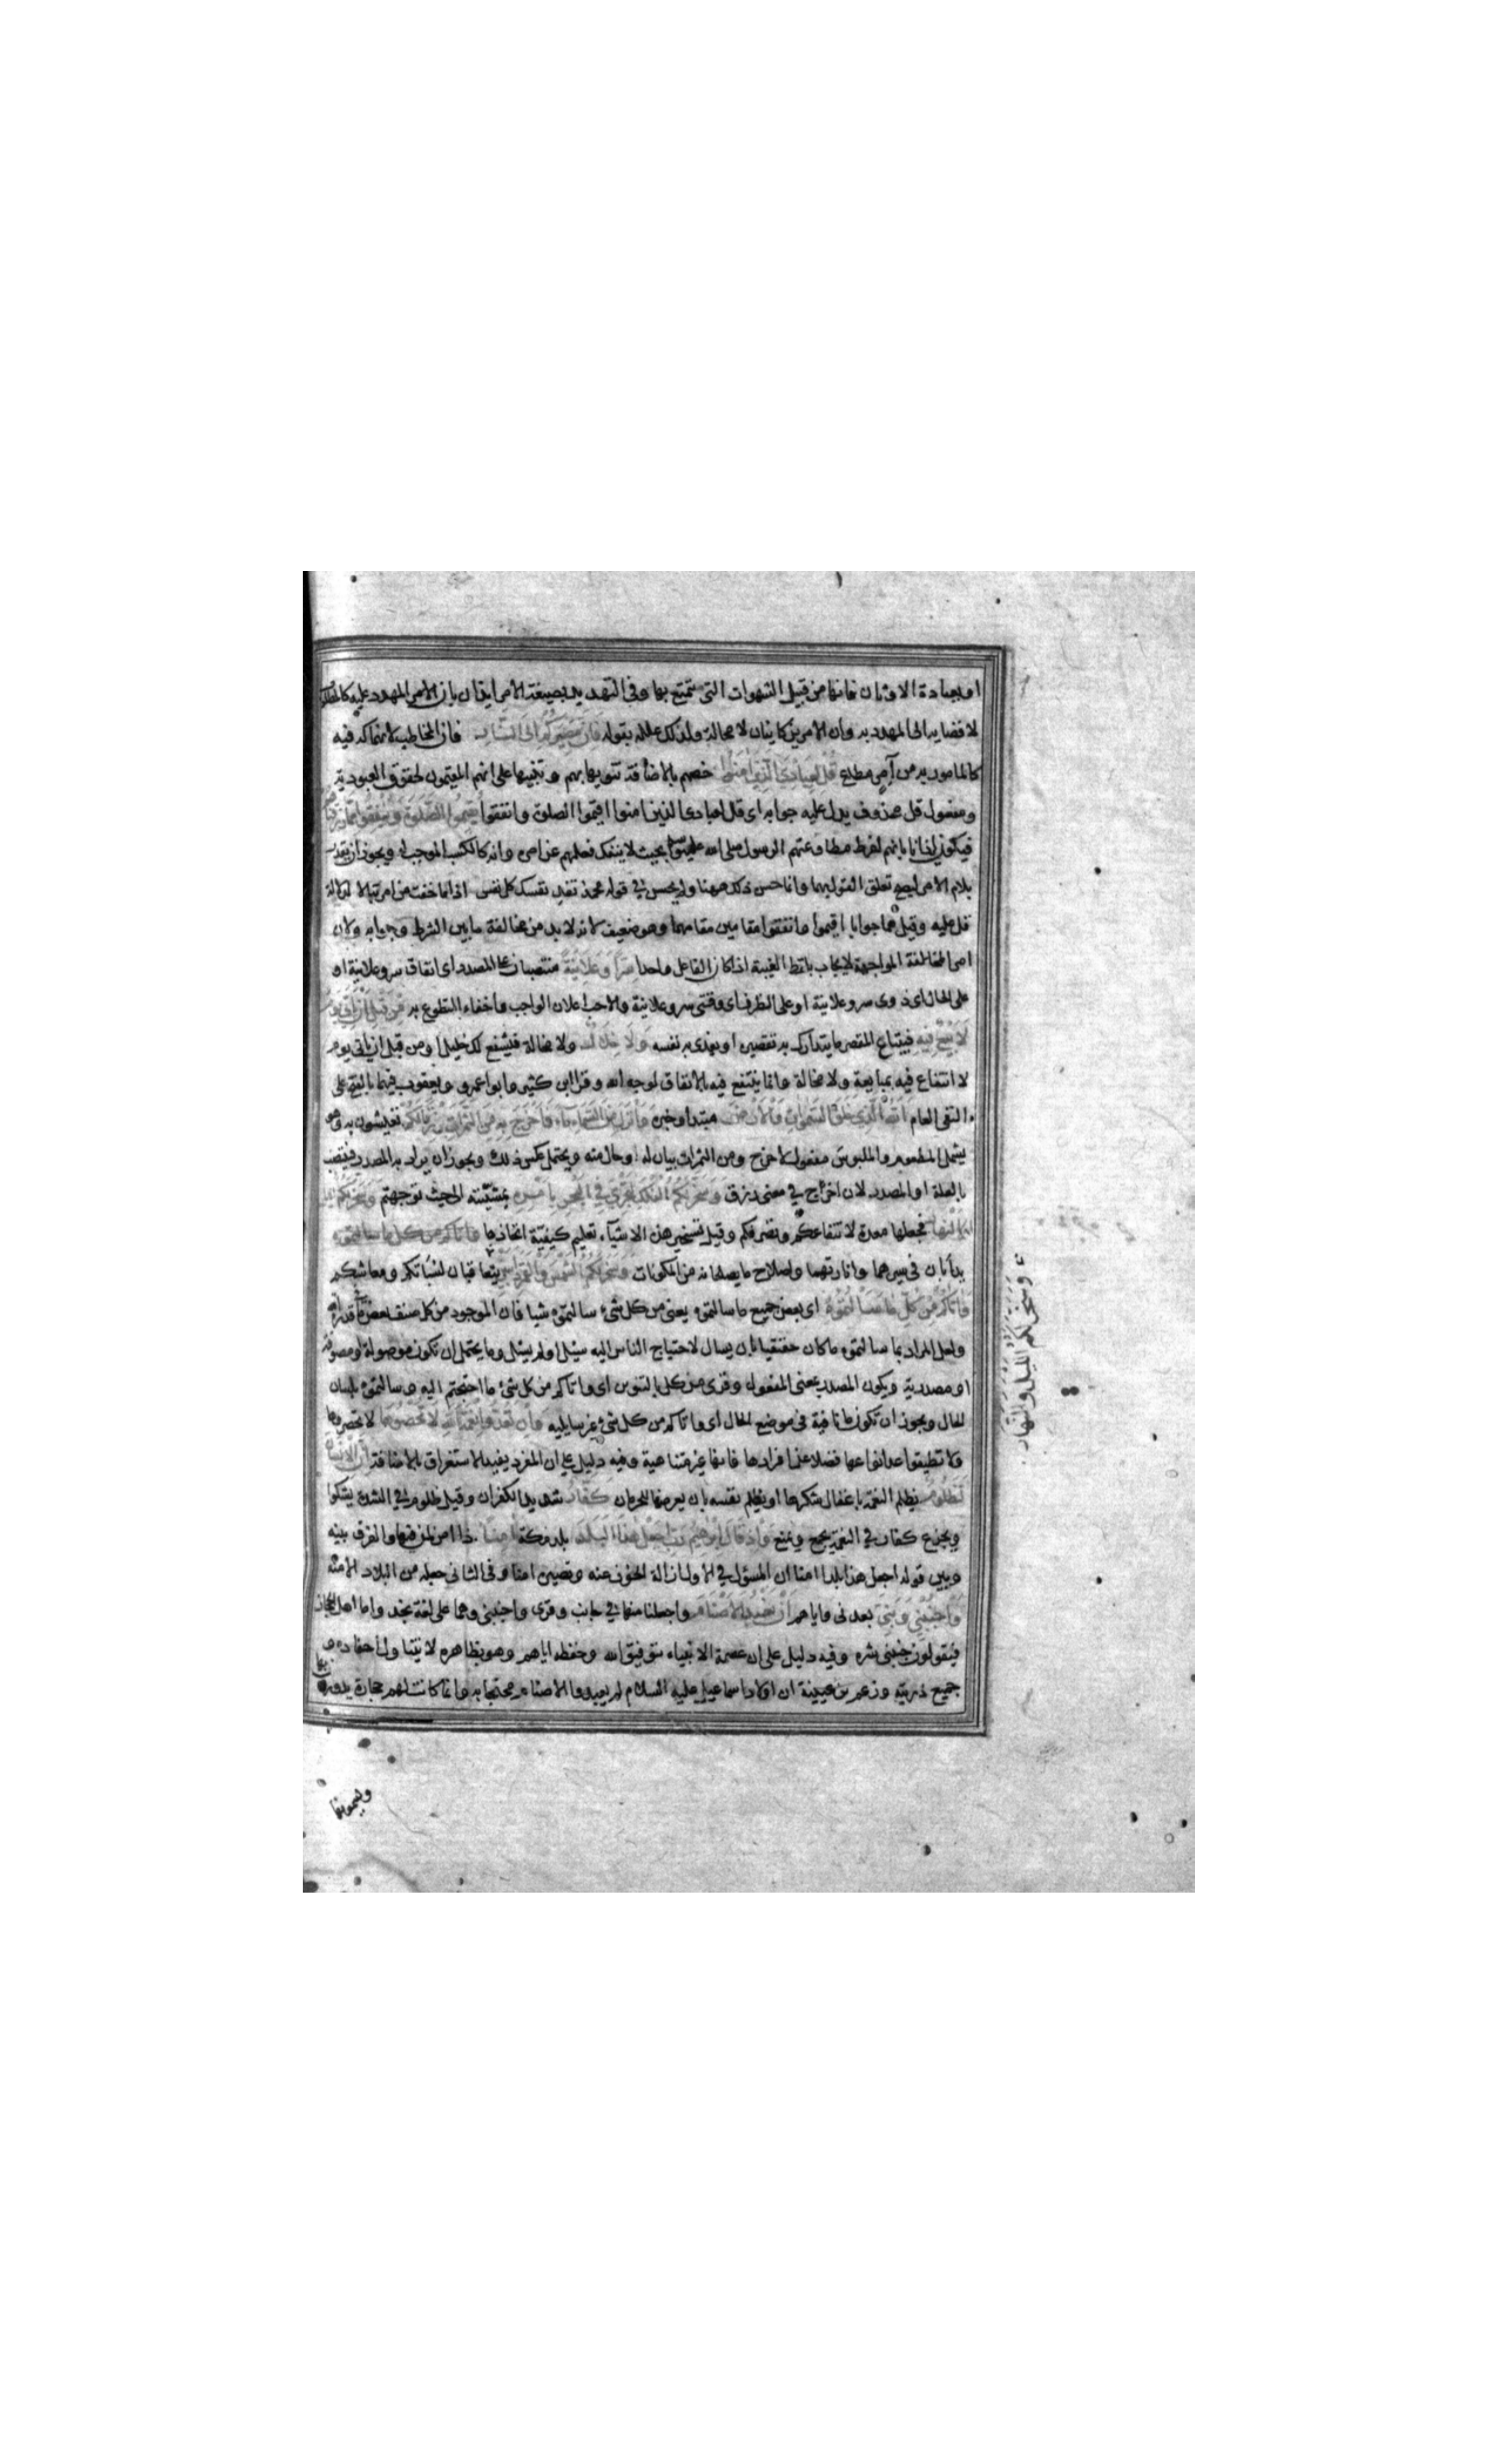 او بعبادة الاوثان فانها من قبيل الشهوات التي يتمتع بها وفي التهديد بصيغة الامر ايذان بان المهدد عليه كالمطلوب
لافضايه الى المهدد به وان الامرين كاينان لا محالة ولذلك علله بقوله فان مصيركم الى النار فان المخاطب لانهماكه فيه
كالمامور به من آمر مطاع قل لعبادي الذين امنوا خصهم بالاضافة تنويها بهم وتنبيها على انهم المقيمون لحقوق العبودية
ومفعول قل محذوف يدل عليه جوابه اي قل لعبادي الذين امنوا اقيموا الصلوة وانفقوا يقيموا الصلوة وينفقوا مما رزقناهم
فيكون ايذانا بانهم لفرط مطاوعتهم الرسول صلى الله عليه وسلم بحيث لا ينفك فعلهم عن امره وانه كالسبب الموجب له ويجوز ان يقدر
بلام الامر ليصح تعلق القول بهما وانما حسن ذلك ههنا ولم يحسن في قوله محمد تفد نفسك كل نفس اذا ما خفت من امر تبالا لدلالة
قل عليه وقيل هما جوابا اقيموا وانفقوا مقامين مقامهما وهو ضعيف لانه لا بد من مخالفة ما بين الشرط وجوابه ولان
امر المواجهة لا يجاب بلفظ الغيبة اذا كان الفاعل واحدا سرا وعلانية منتصبان على المصدر اي انفاق سر وعلانية او
على الحال اي ذوى سر وعلانية او على الظرف اي وقتى سر وعلانية والاحب اعلان الواجب واخفاء التطوع به من قبل ان ياتي يوم
لا بيع فيه فيبتاع المقصر ما يتدارك به تقصيره او يفدى به نفسه ولا خلال ولا مخالة فيشفع لك خليل او من قبل ان ياتي يوم
لا انتفاع فيه بمبايعة ولا مخالة وانما ينتفع فيه بالانفاق لوجه الله وقرا ابن كثير وابو عمرو ويعقوب فيهما بالفتح على
النفى العام الله الذي خلق السموات والارض مبتدا وخبره وانزل من السماء ماء فاخرج به من الثمرات رزقا لكم تعيشون به وهو
يشمل المطعوم والملبوس مفعول لاخرج ومن الثمرات بيان له او حال منه ويحتمل عكس ذلك ويجوز ان يراد به المصدر فينتصب
بالعلة او المصدر لان اخرج في معنى رزق وسخر لكم الفلك لتجري في البحر بامره بمشيئته الى حيث توجهتم وسخر لكم
الانهار فجعلها معدة لانتفاعكم وتصرفكم وقيل تسخير هذه الاشياء تعليم كيفية اتخاذها واتاكم من كل ما سالتموه
يدأبان في سيرهما وانارتهما واصلاح ما يصلحانه من المكونات وسخر لكم الشمس والقمر دائبين يتعاقبان لسباتكم ومعاشكم
واتاكم من كل ما سالتموه اي بعض جميع ما سالتموه يعنى من كل شئ سالتموه شيا فان الموجود من كل صنف بعض ما في قدرة الله
ولعل المراد بما سالتموه ما كان حقيقيا بان يسال لاحتياج الناس اليه سئل او لم يسئل وما يحتمل ان تكون موصولة او موصوفة
او مصدرية ويكون المصدر بمعنى المفعول وقرى من كل بالتنوين اي واتاكم من كل شئ ما احتجتم اليه وسالتموه بلسان
الحال ويجوز ان تكون ما نافية في موضع الحال اي واتاكم من كل شئ غير سايليه وان تعدوا نعمة الله لا تحصوها لا تحصروها
ولا تطيقوا عد انواعها فضلا عن افرادها فانها غير متناهية وفيه دليل على ان المفرد يفيد الاستغراق بالاضافة ان الانسان
لظلوم يظلم النعمة باغفال شكرها او يظلم نفسه بان يعرضها للحرمان كفار شديد الكفران وقيل ظلوم في الشدة يشكوا
ويجزع كفار في النعمة يجمع ويمنع واذ قال ابرهيم رب اجعل هذا البلد بلد مكة امنا ذا امن لمن فيها والفرق بينه
وبين قوله اجعل هذا بلدا امنا ان المسؤل في الاول ازالة الخوف عنه وتصييره امنا وفى الثانى جعله من البلاد الامنة
واجنبني وبني بعدنى واياهم ان نعبد الاصنام واجعلنا منها في جانب وقرى واجنبني وهما على لغة نجد واما اهل الحجاز
فيقولون جنبنى شره وفيه دليل على ان عصمة الانبياء بتوفيق الله وحفظه اياهم وهو بظاهره لا يتناول احفاده و
جميع ذريته وزعم بن عيينة ان اولاد اسماعيل عليه السلام لم يعبدوا الاصنام محتجا به وانما كانت لهم حجارة يدورون بها
وسخر لكم الليل والنهار
ويسمونها